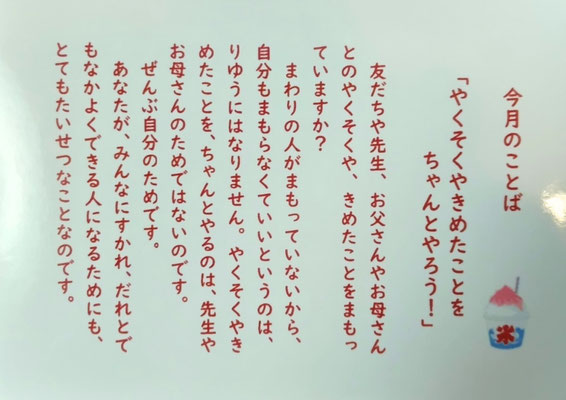 今月のことば
「やくそくやきめたことを
ちゃんとやろう！」
友だちや先生、お父さんやお母さん
とのやくそくや、きめたことをまもっ
ていますか？
まわりの人がまもっていないから、
自分もまもらなくていいというのは、
りゆうにはなりません。やくそくやき
めたことを、ちゃんとやるのは、先生や
お母さんのためではないのです。
ぜんぶ自分のためです。
あなたが、みんなにすかれ、だれとで
もなかよくできる人になるためにも、
とてもたいせつなことなのです。
氷